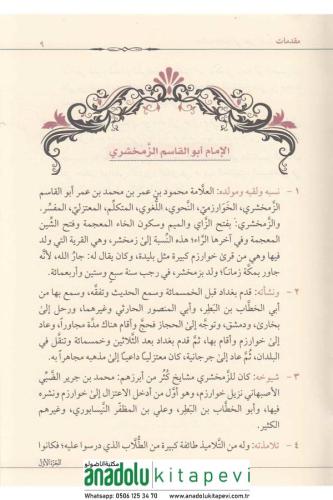 مقدمات
٩
الإمام أبو القاسم الزَّمخشري
١ - نسبه ولقبه ومولده: العلّامة محمود بن عمر بن محمد بن عمر أبو القاسم
الزَّمخشري، الخَوارزميّ، النَّحوي، اللُّغوي، المتكلِّم، المعتزليّ، المفسِّر.
والزَّمخشري: بفتح الزَّاي والميم وسكون الخاء المعجمة وفتح الشّين
المعجمة وفي آخرها الرَّاء؛ هذه النِّسبة إلى زمخشر، وهي القرية التي ولد
فيها وهي من قرى خوارزم كبيرة مثل بليدة، وكان يقال له: جارُ الله، لأنه
جاور بمكّة زماناً؛ ولد بزمخشر، في رجب سنة سبع وستين وأربعمائة.
٢ - ونشأته: قدم بغداد قبل الخمسمائة وسمع الحديث وتفقّه، وسمع بها من
أبي الخطَّاب بن البَطِر، وأبي المنصور الحارثي وغيرهم، ورحل إلى
بخارى، ودمشق، وتوجّه إلى الحجاز فحجَّ وأقام هناك مدّة مجاوراً، وعاد
إلى خوارزم وأقام بها، ثمَّ قدم بغداد بعد الثلاثين وخمسمائة وتنقَّل في
البلدان، ثمَّ عاد إلى جرجانية، كان معتزليًّا داعياً إلى مذهبه مجاهراً به.
٣ - شيوخه: كان للزَّمخشري مشايخ كُثُر من أبرزهم: محمد بن جرير الضَّبِّي
الأصبهاني نزيل خوارزم، وهو أوّل من أدخل الاعتزال إلى خوارزم ونشره
فيها، وأبو الخطَّاب بن البَطِر، وعلي بن المظفّر النَّيسابوري، وغيرهم
الكثير.
٤ - تلامذته: وله من التَّلاميذ طائفة كبيرة من الطُّلاب الذي درسوا عليه؛ فكانوا
الجزء الأوّل
مكتبة اناضولو
anadolukitapevi
Whatsapp: 0506 125 34 70 - www.anadolukitapevi.com